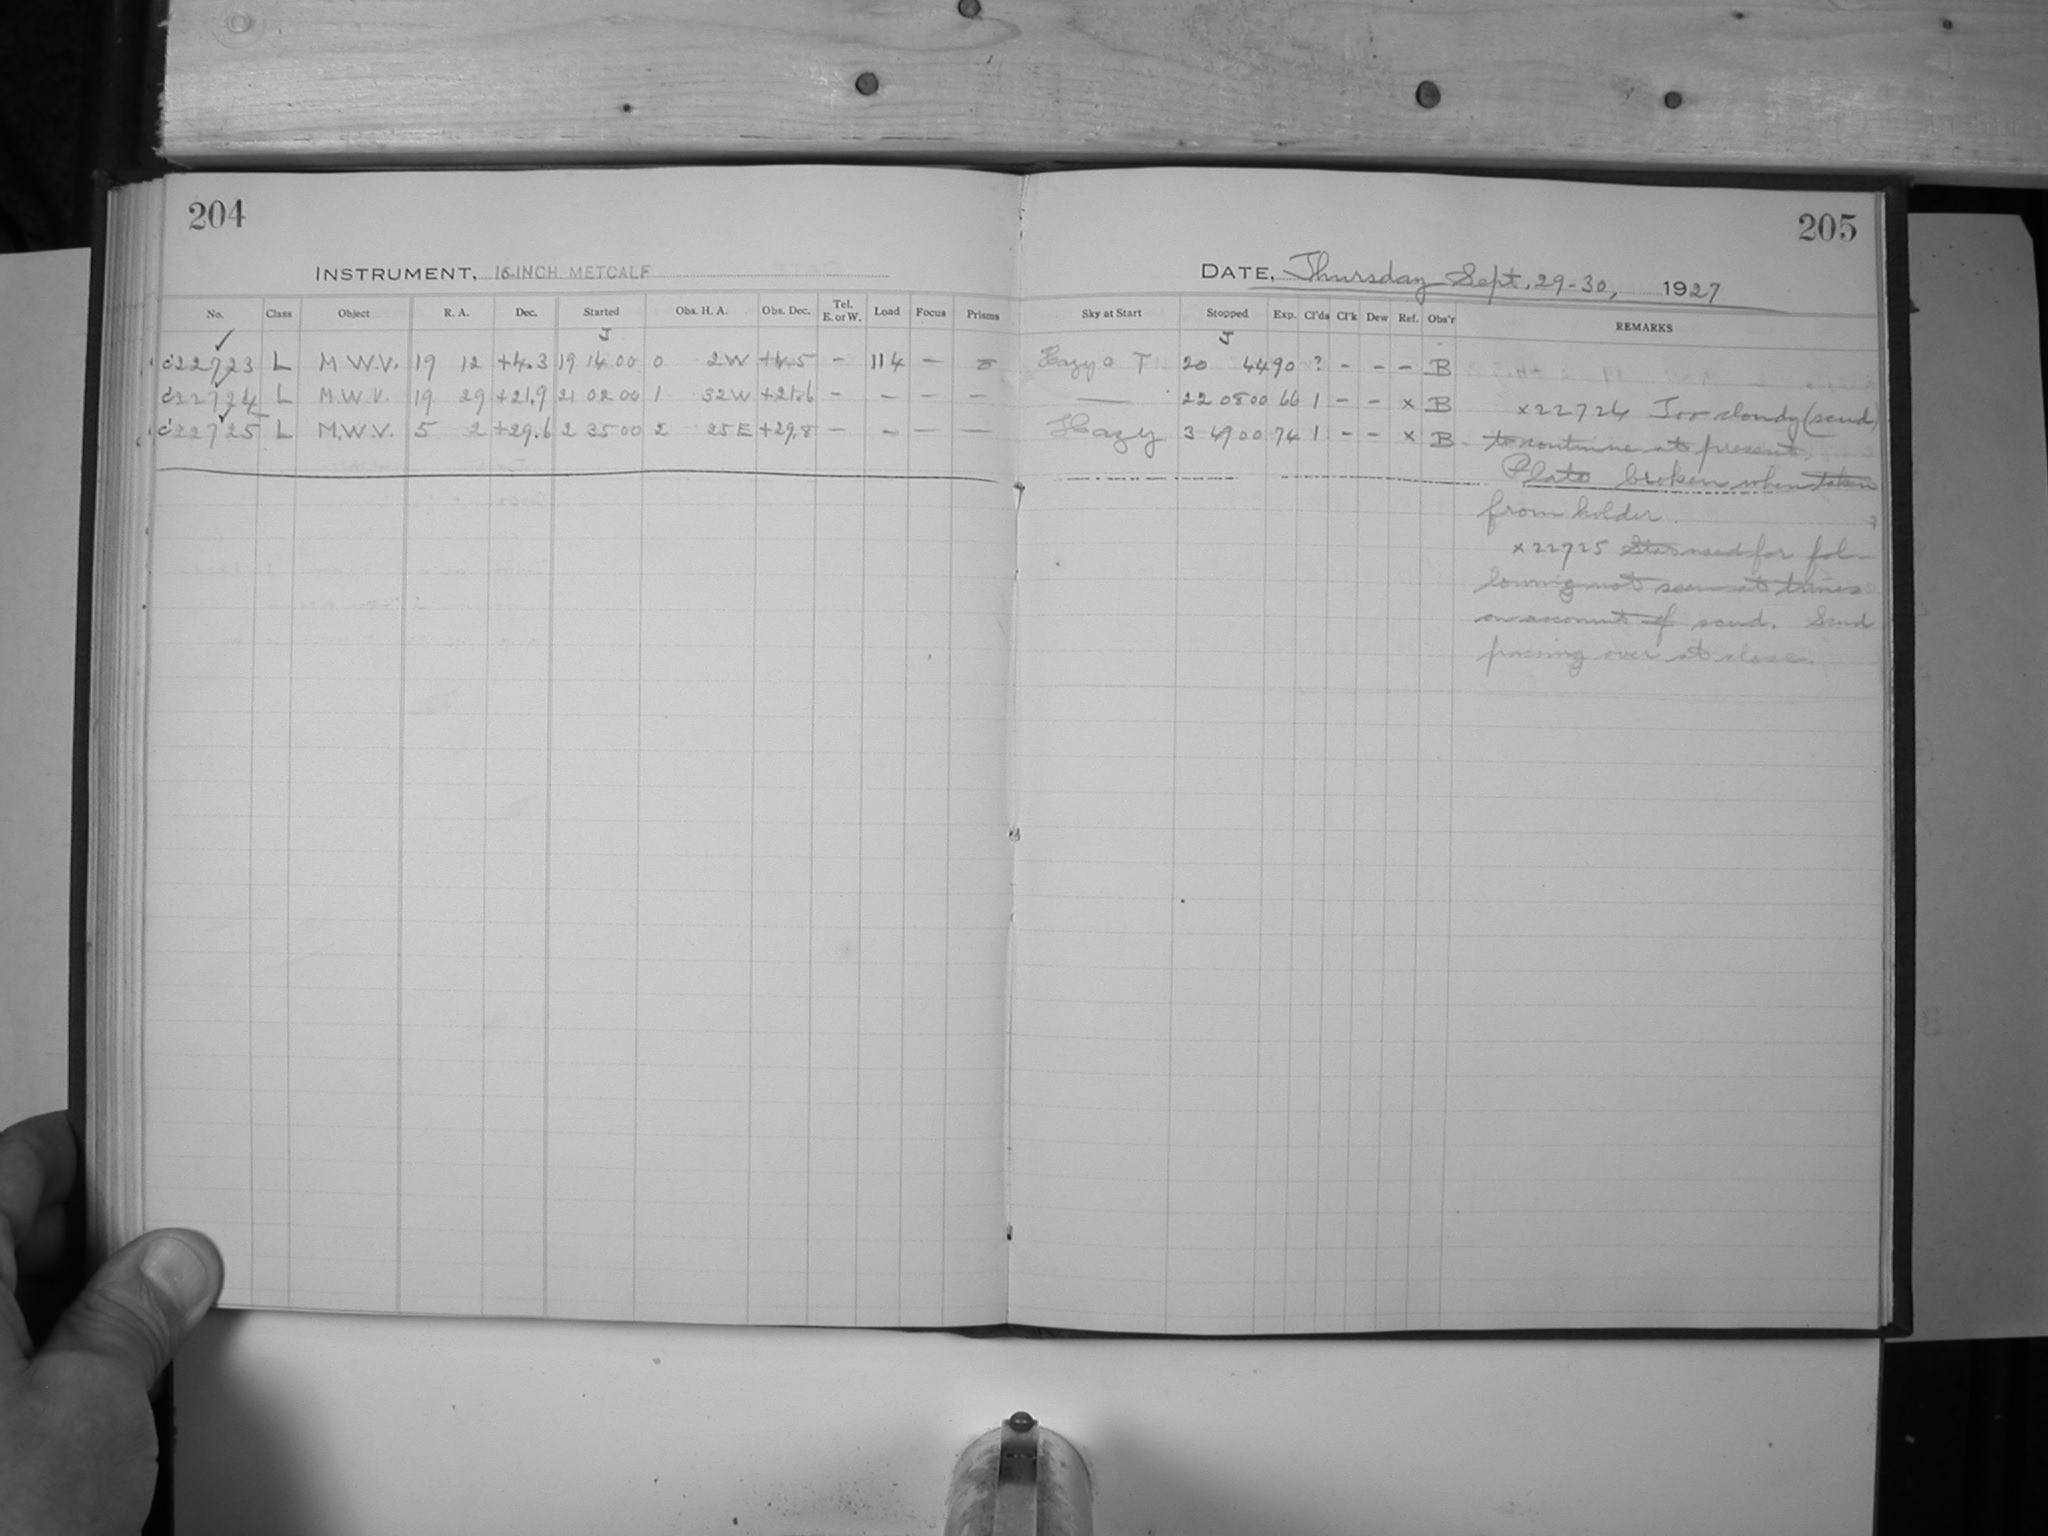 204
INSTRUMENT, 16-INCH METCALF
No. Class Object R. A. Dec. Started Obs. H. A. Obs. Dec. Tel. E. or W. Load Focus Prisms
J
c22723 L M.W.V. 19 12 +4.3 19 14 00 0 2W +4.5 - 114 -
c22724 L M.W.V. 19 29 +21.9 21 02 00 1 32W +21.6 - - - -
c22725 L M.W.V. 5 2 +29.6 2 35 00 2 25E +29.8 - - - -
205
DATE, Thursday Sept. 29-30, 1927
Sky at Start Stopped Exp. Cl'ds Cl'k Dew Ref. Obs'r REMARKS
J
Hazy T 20 44 90 ? - - - B
— 22 08 00 66 1 - - x B
Hazy 3 49 00 74 1 - - x B
x22724 Too cloudy (scud)
to continue at present.
Plate broken when taken
from holder.
x22725 Star used for fol-
lowing not seen at times
on account of scud. Scud
passing over at close.